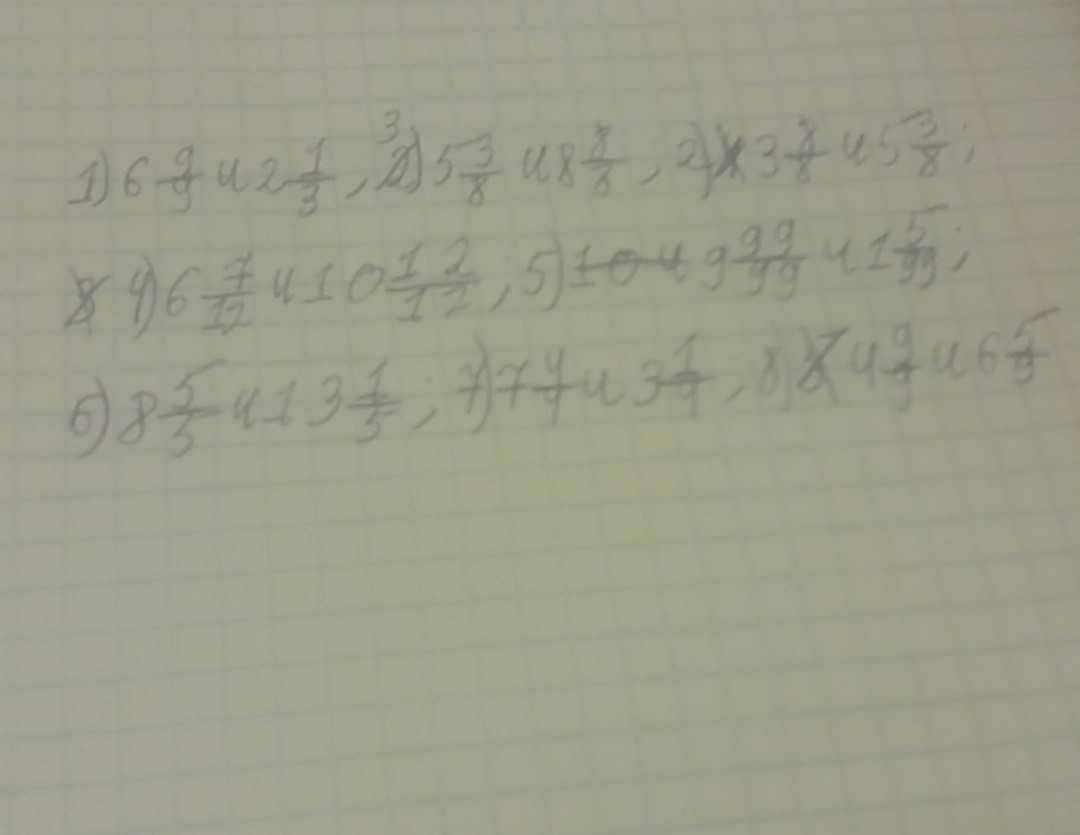 1) 6 9/9 и 2 1/3, 3) 5 3/8 и 8 8/8, 2) 3 8/8 и 5 3/8;
4) 6 7/12 и 10 12/12, 5) 9 99/99 и 1 5/99;
6) 8 5/5 и 13 1/5; 7) 7 4/7 и 3 1/7, 8) 4 9/9 и 6 5/9